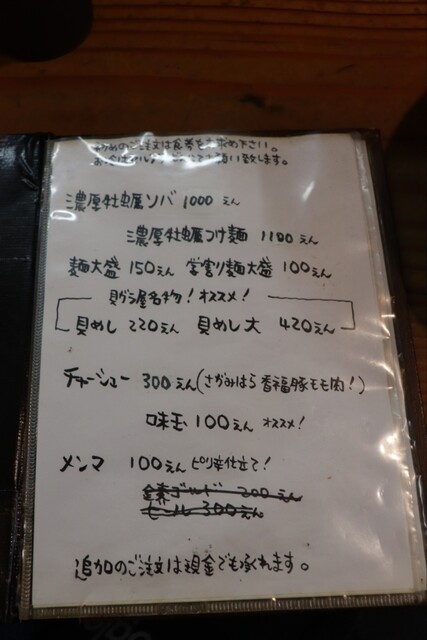 初めのご注文は食券をお求め下さい。
お願い致します。
濃厚牡蠣ソバ 1000えん
濃厚牡蠣つけ麺 1100えん
麺大盛 150えん 学割り麺大盛 100えん
貝がら屋名物!オススメ!
貝めし 220えん 貝めし大 420えん
チャーシュー 300えん(さがみはら香福豚モモ肉!)
味玉 100えん オススメ!
メンマ 100えん ピリ辛仕立て!
金麦ゴールド 200えん
ビール 300えん
追加のご注文は現金でも承れます。